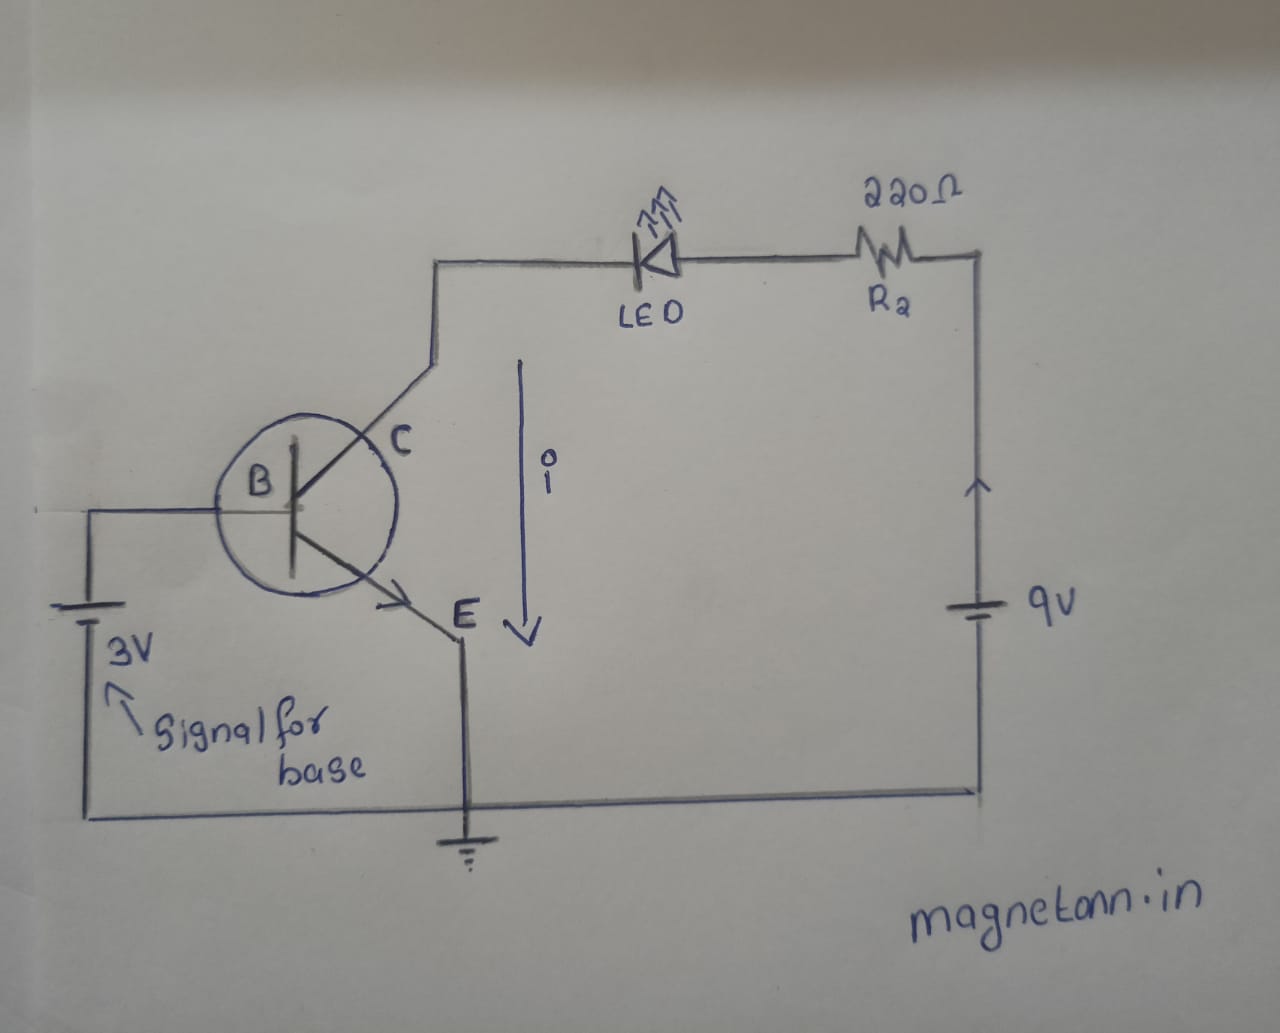 220Ω
R2
LED
C
B
i
E
9V
3V
Signal for
base
magnetonn.in